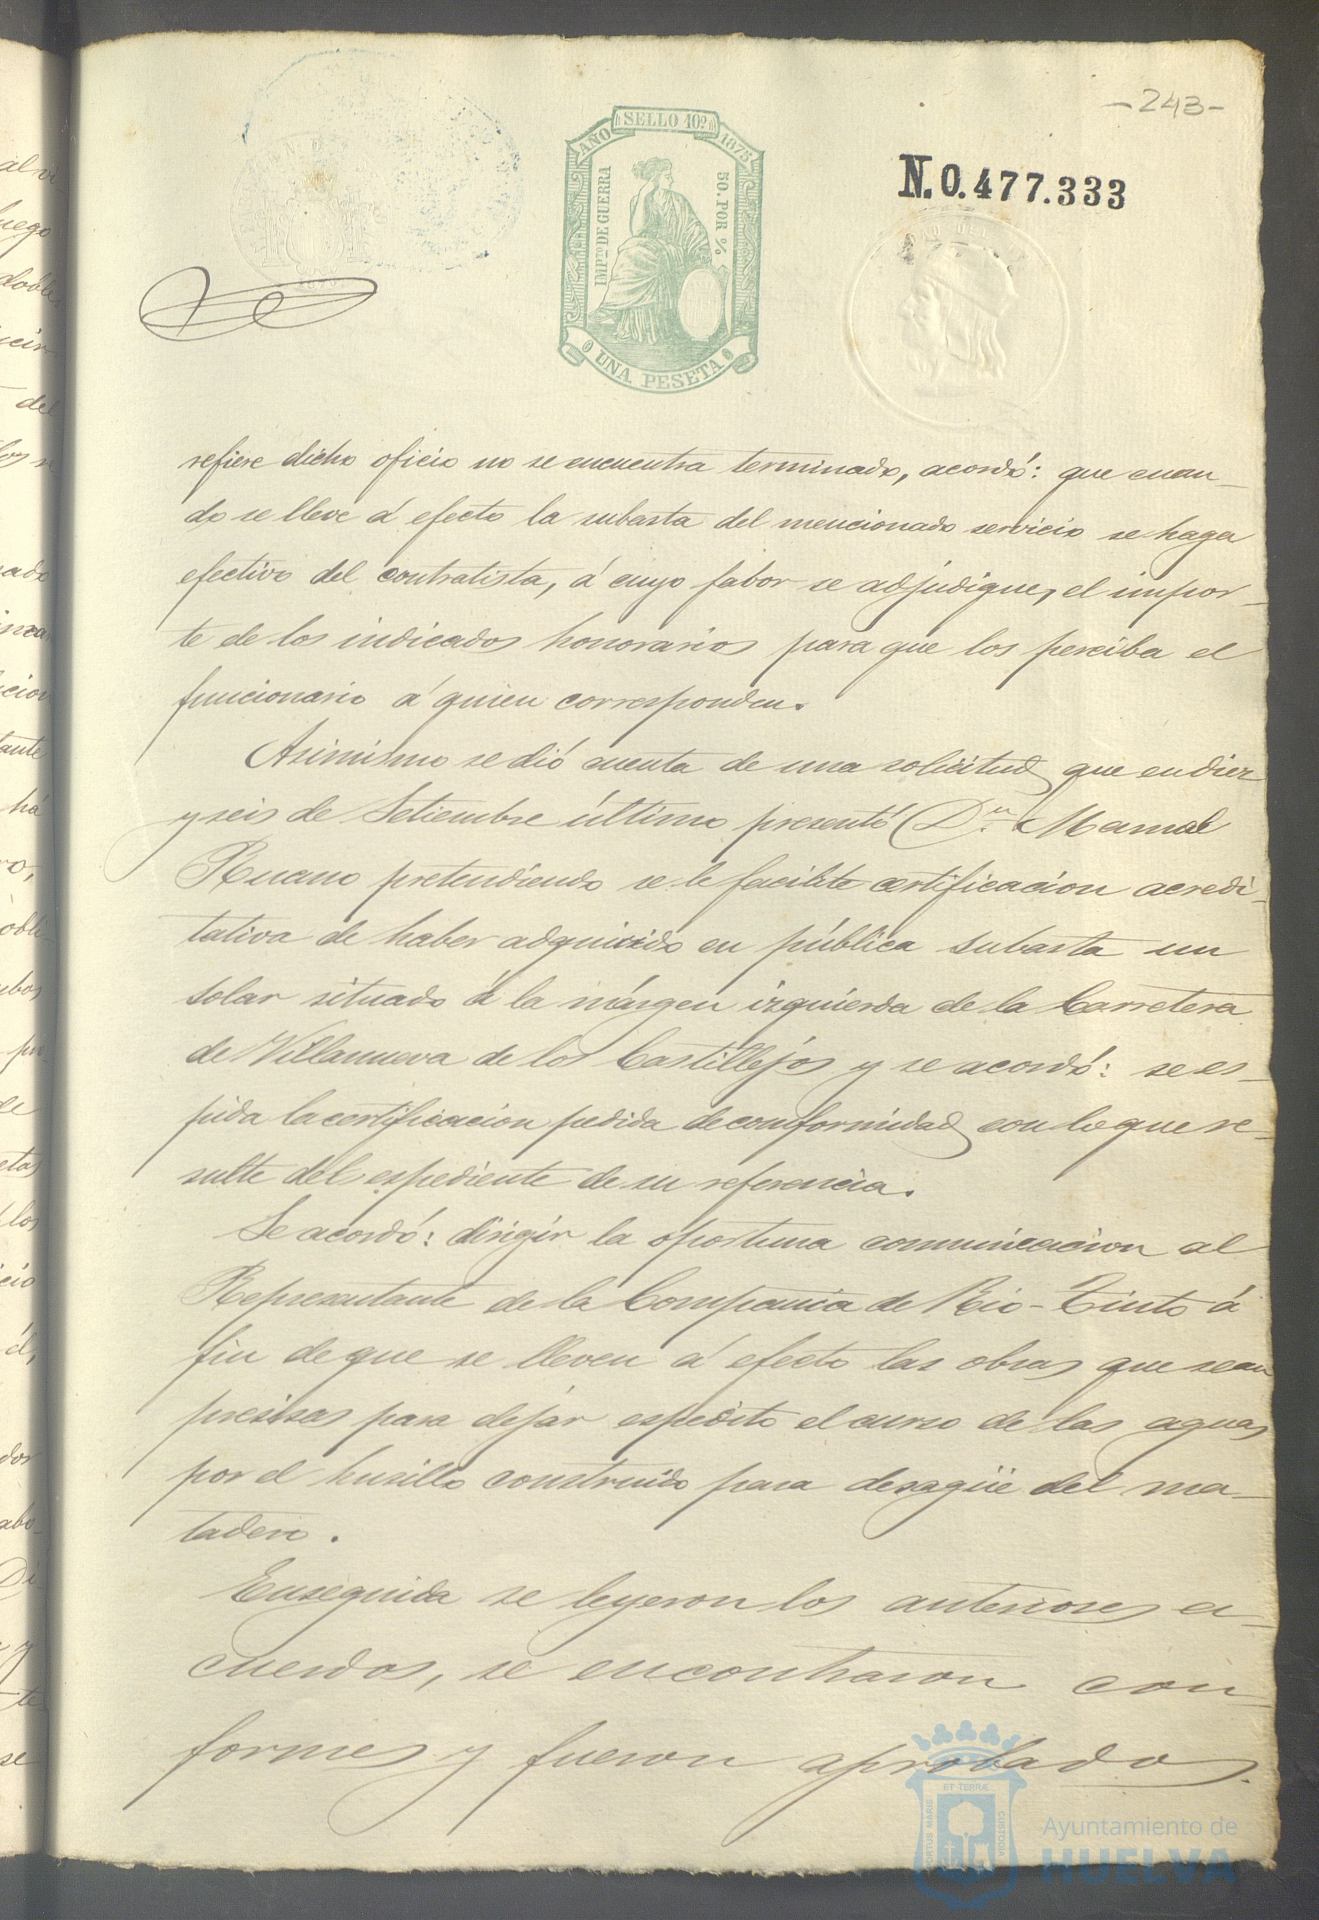 -243-
SELLO 10º
AÑO 1875
IMPTO DE GUERRA
50. POR %
UNA PESETA
N.0.477.333
refiere dicho oficio no se encuentra terminado, acordó: que cuan-
do se lleve á efecto la subasta del mencionado servicio se haga
efectivo del contratista, á cuyo fabor se adjudique, el impor-
te de los indicados honorarios para que los perciba el
funcionario á quien corresponden.
Asimismo se dió cuenta de una solicitud que en diez
y seis de Setiembre último presentó Dn. Manuel
Ruano pretendiendo se le facilite certificacion acredi-
tativa de haber adquirido en pública subasta un
solar situado á la márgen izquierda de la Carretera
de Villanueva de los Castillejos y se acordó: se es-
pida la certificacion pedida de conformidad con lo que re-
sulte del espediente de su referencia.
Se acordó: dirigir la oportuna comunicacion al
Representante de la Compania de Rio-Tinto á
fin de que se lleven á efecto las obras que sean
precisas para dejár espedito el curso de las aguas
por el husillo construido para desagüe del ma-
tadero.
Enseguida se leyeron los anteriores a-
cuerdos, se encontraron con-
formes y fueron aprobados.
PORTUS MARIS ET TERRÆ CUSTODIA
Ayuntamiento de
HUELVA